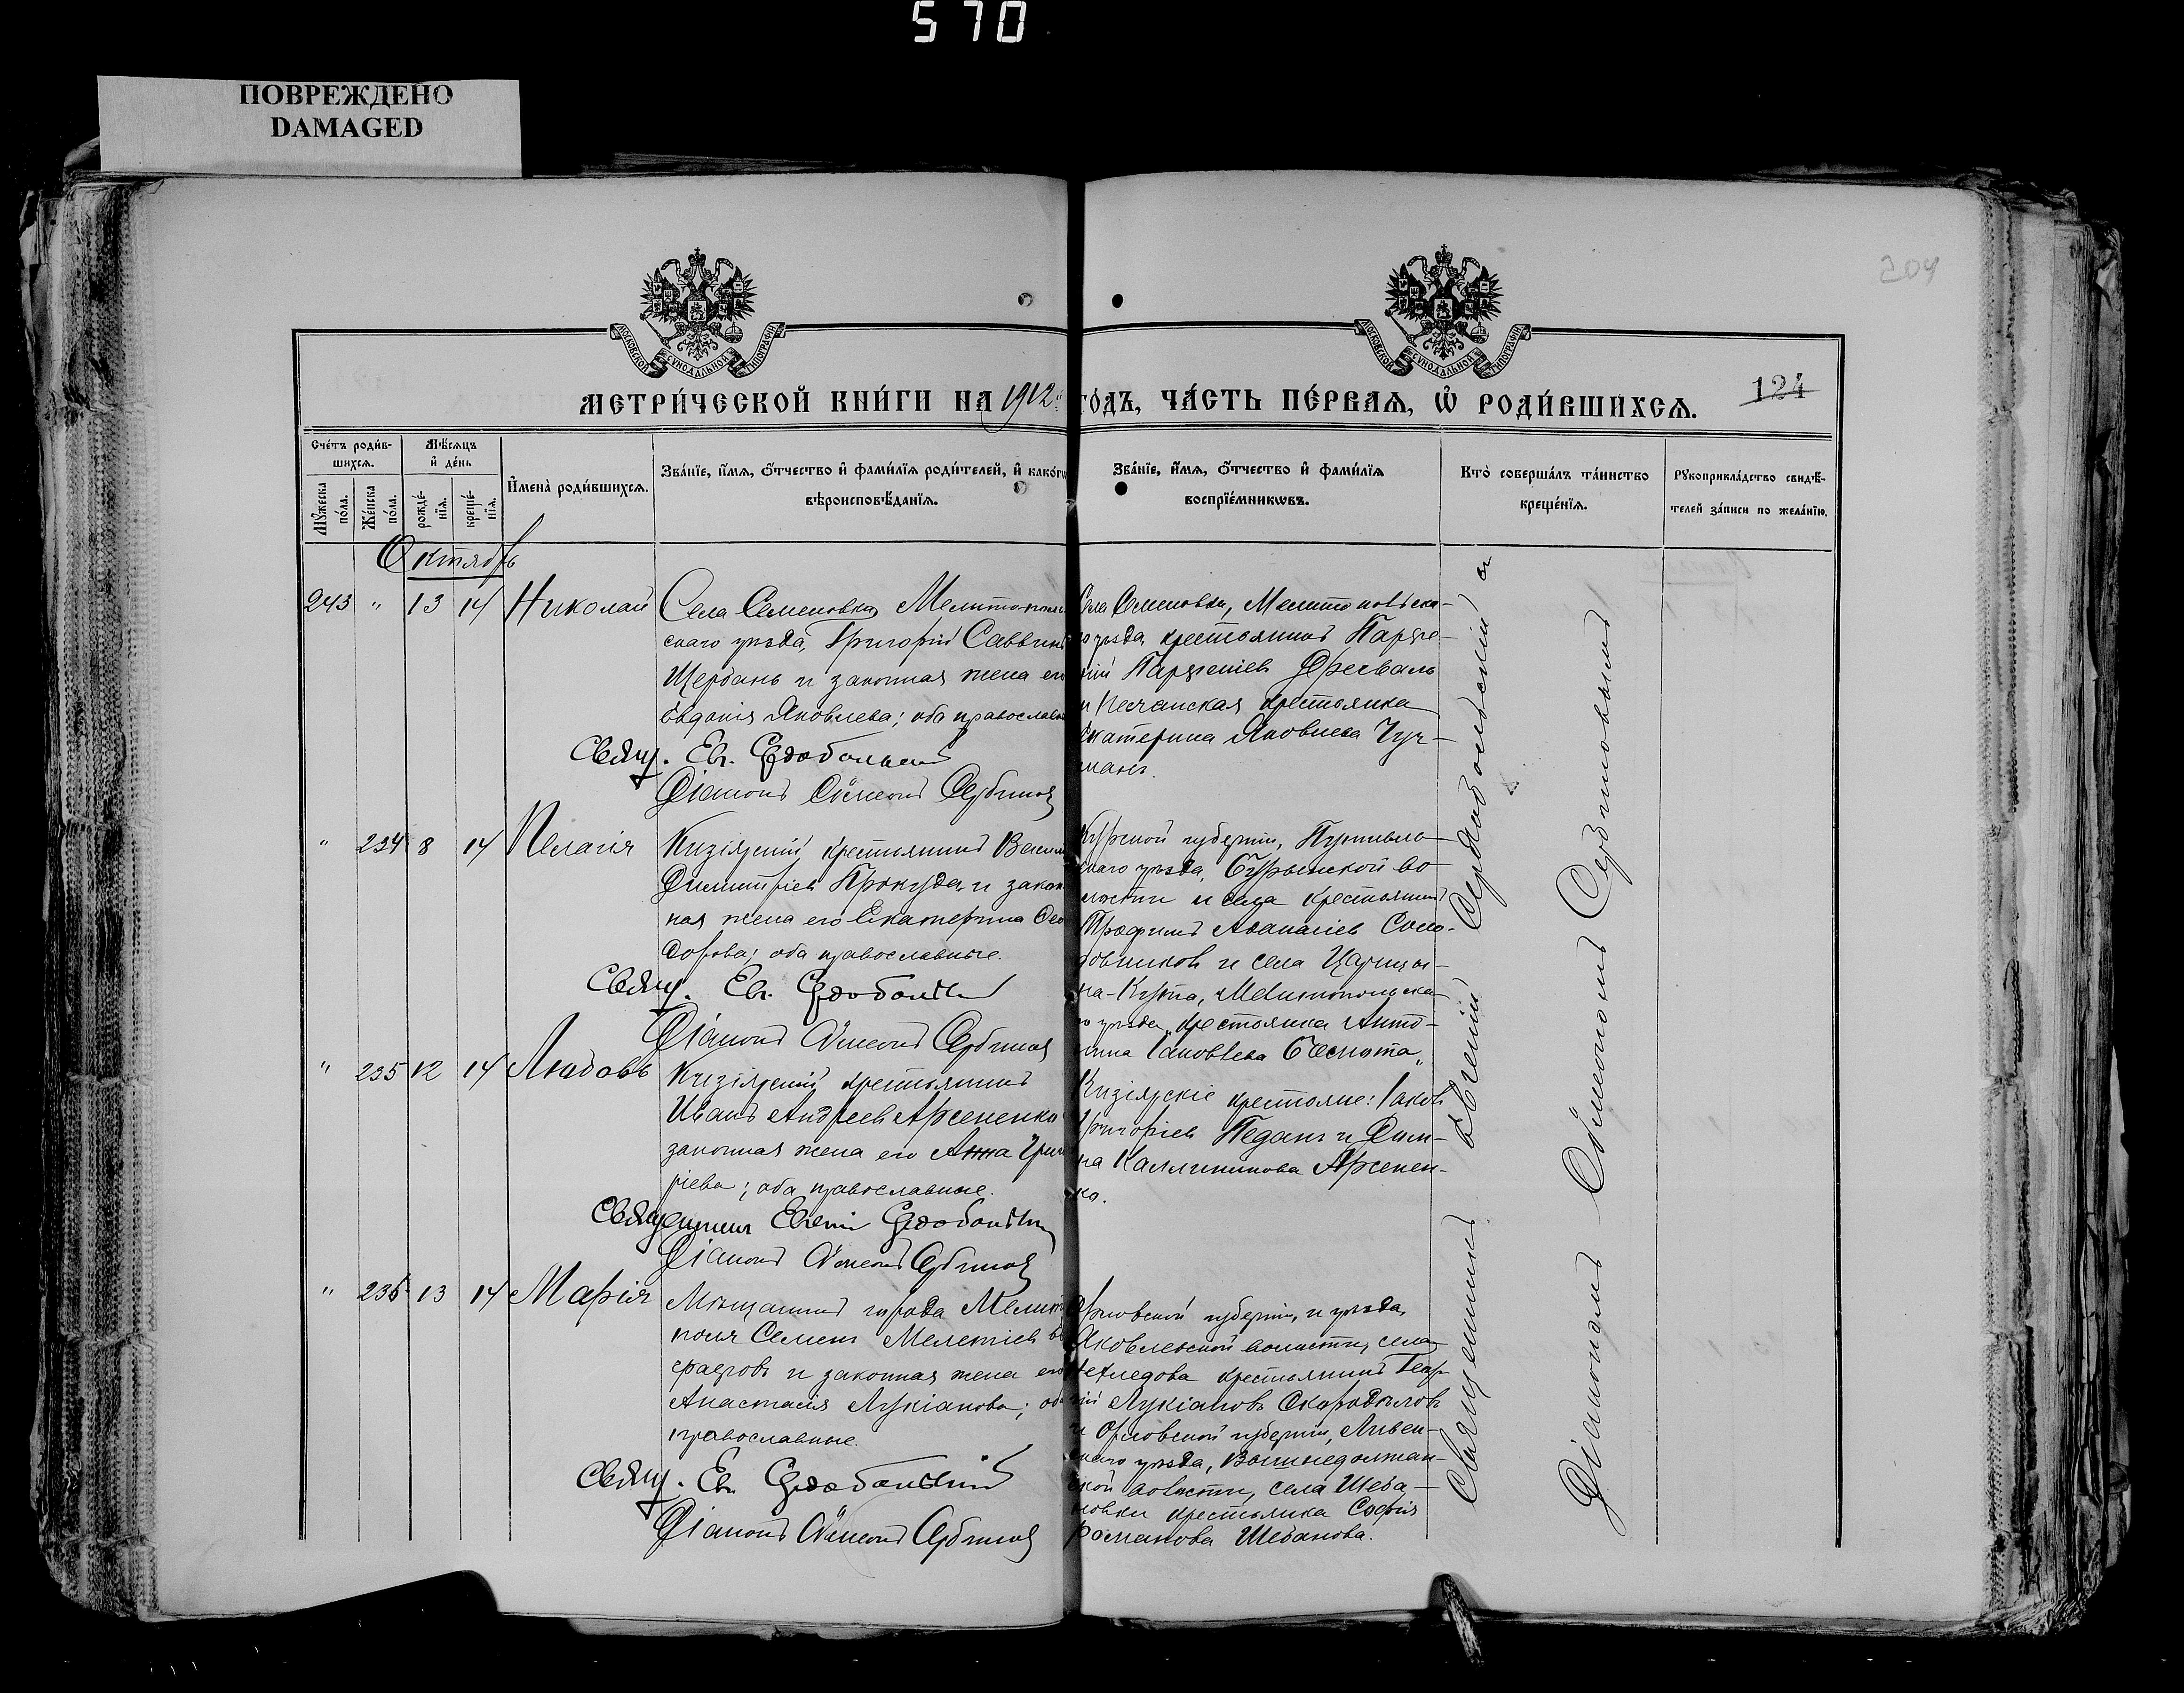 570
ПОВРЕЖДЕНО
DAMAGED
204
МОСКОВСКОЙ СѴНОДАЛЬНОЙ ТИПОГРАФІИ
МОСКОВСКОЙ СѴНОДАЛЬНОЙ ТИПОГРАФІИ
МЕТРИ́ЧЕСКОЙ КНИ́ГИ НА 1912 го́дъ, ЧА́СТЬ ПЕ́РВАѦ, Ѡ҆ РОДИ́ВШИХСѦ.
124
Сче́тъ роди́в-
шихсѧ.
Мꙋ́жеска по́ла.
Же́нска по́ла.
Мѣ́сѧцъ
и҆ де́нь
рожде́-
нїѧ.
креще́-
нїѧ.
И҆мена̀ роди́вшихсѧ.
Зва́нїе, и҆́мѧ, ѻ҆́тчество и҆ фами́лїѧ роди́телей, и҆ како́гѡ
вѣроисповѣ́данїѧ.
Зва́нїе, и҆́мѧ, ѻ҆́тчество и҆ фами́лїѧ
воспрїе́мникѡвъ.
Кто̀ соверша́лъ та́инство
креще́нїѧ.
Рꙋкоприкла́дство свидѣ́-
телей за́писи по жела́нїю.
Октябрь
243 " 13 14 Николай
Села Семеновки Мелитополь
скаго уѣзда, Григорій Саввинъ
Щербань и законная жена его
Евдокія Яковлева; оба православ
Свящ. Ев. Сердобольскій
Діаконъ Сѵмеонъ Сербиновъ
Села Семеновки, Мелитопольска-
го уѣзда крестьянинъ Парѳе-
ній Парѳеніевъ
и Песчанская крестьянка
Екатерина Яковлева Чуч-
манъ.
" 234 8 14 Пелагія
Кизіярскій крестьянинъ Васил
Димитріевъ Прокуда и закон
ная жена его Екатерина Ѳео
дорова; оба православные.
Свящ. Ев. Сердобольскій
Діаконъ Сѵмеонъ Сербиновъ
Курской губерніи, Путивль-
скаго уѣзда, Бурынской во-
лости и села крестьянинъ
Трофимъ Аѳанасіевъ Соло-
довниковъ и села Царицы-
на-Кута, Мелитопольска-
го уѣзда, крестьянка Анто-
нина Іаковлева
" 235 12 14 Любовь
Кизіярскій крестьянинъ
Иванъ Андреевъ Арсененко
законная жена его Анна Григо
ріева; оба православные.
Священникъ Евгеній Сердобольскій
Діаконъ Сѵмеонъ Сербиновъ
Кизіярскіе крестьяне: Іаковъ
Григоріевъ Педанъ и Дом-
на Каллиникова Арсенен-
ко.
" 236 13 14 Марія
Мѣщанинъ города Мелито
поля Семенъ Мелетіевъ
и законная жена его
Анастасія Лукіанова; об
православные.
Свящ. Ев. Сердобольскій
Діаконъ Сѵмеонъ Сербиновъ
Орловской губерніи, и уѣзда,
Яковлевской волости, села
крестьянинъ Геор-
гій Лукіановъ Скородыловъ
и Орловской губерніи, Ливен-
скаго уѣзда,
ской волости, села Шеба-
новки крестьянка Софія
Романова Шебанова.
Священникъ Евгеній Сердобольскій съ
Діакономъ Сѵмеономъ Сербиновымъ